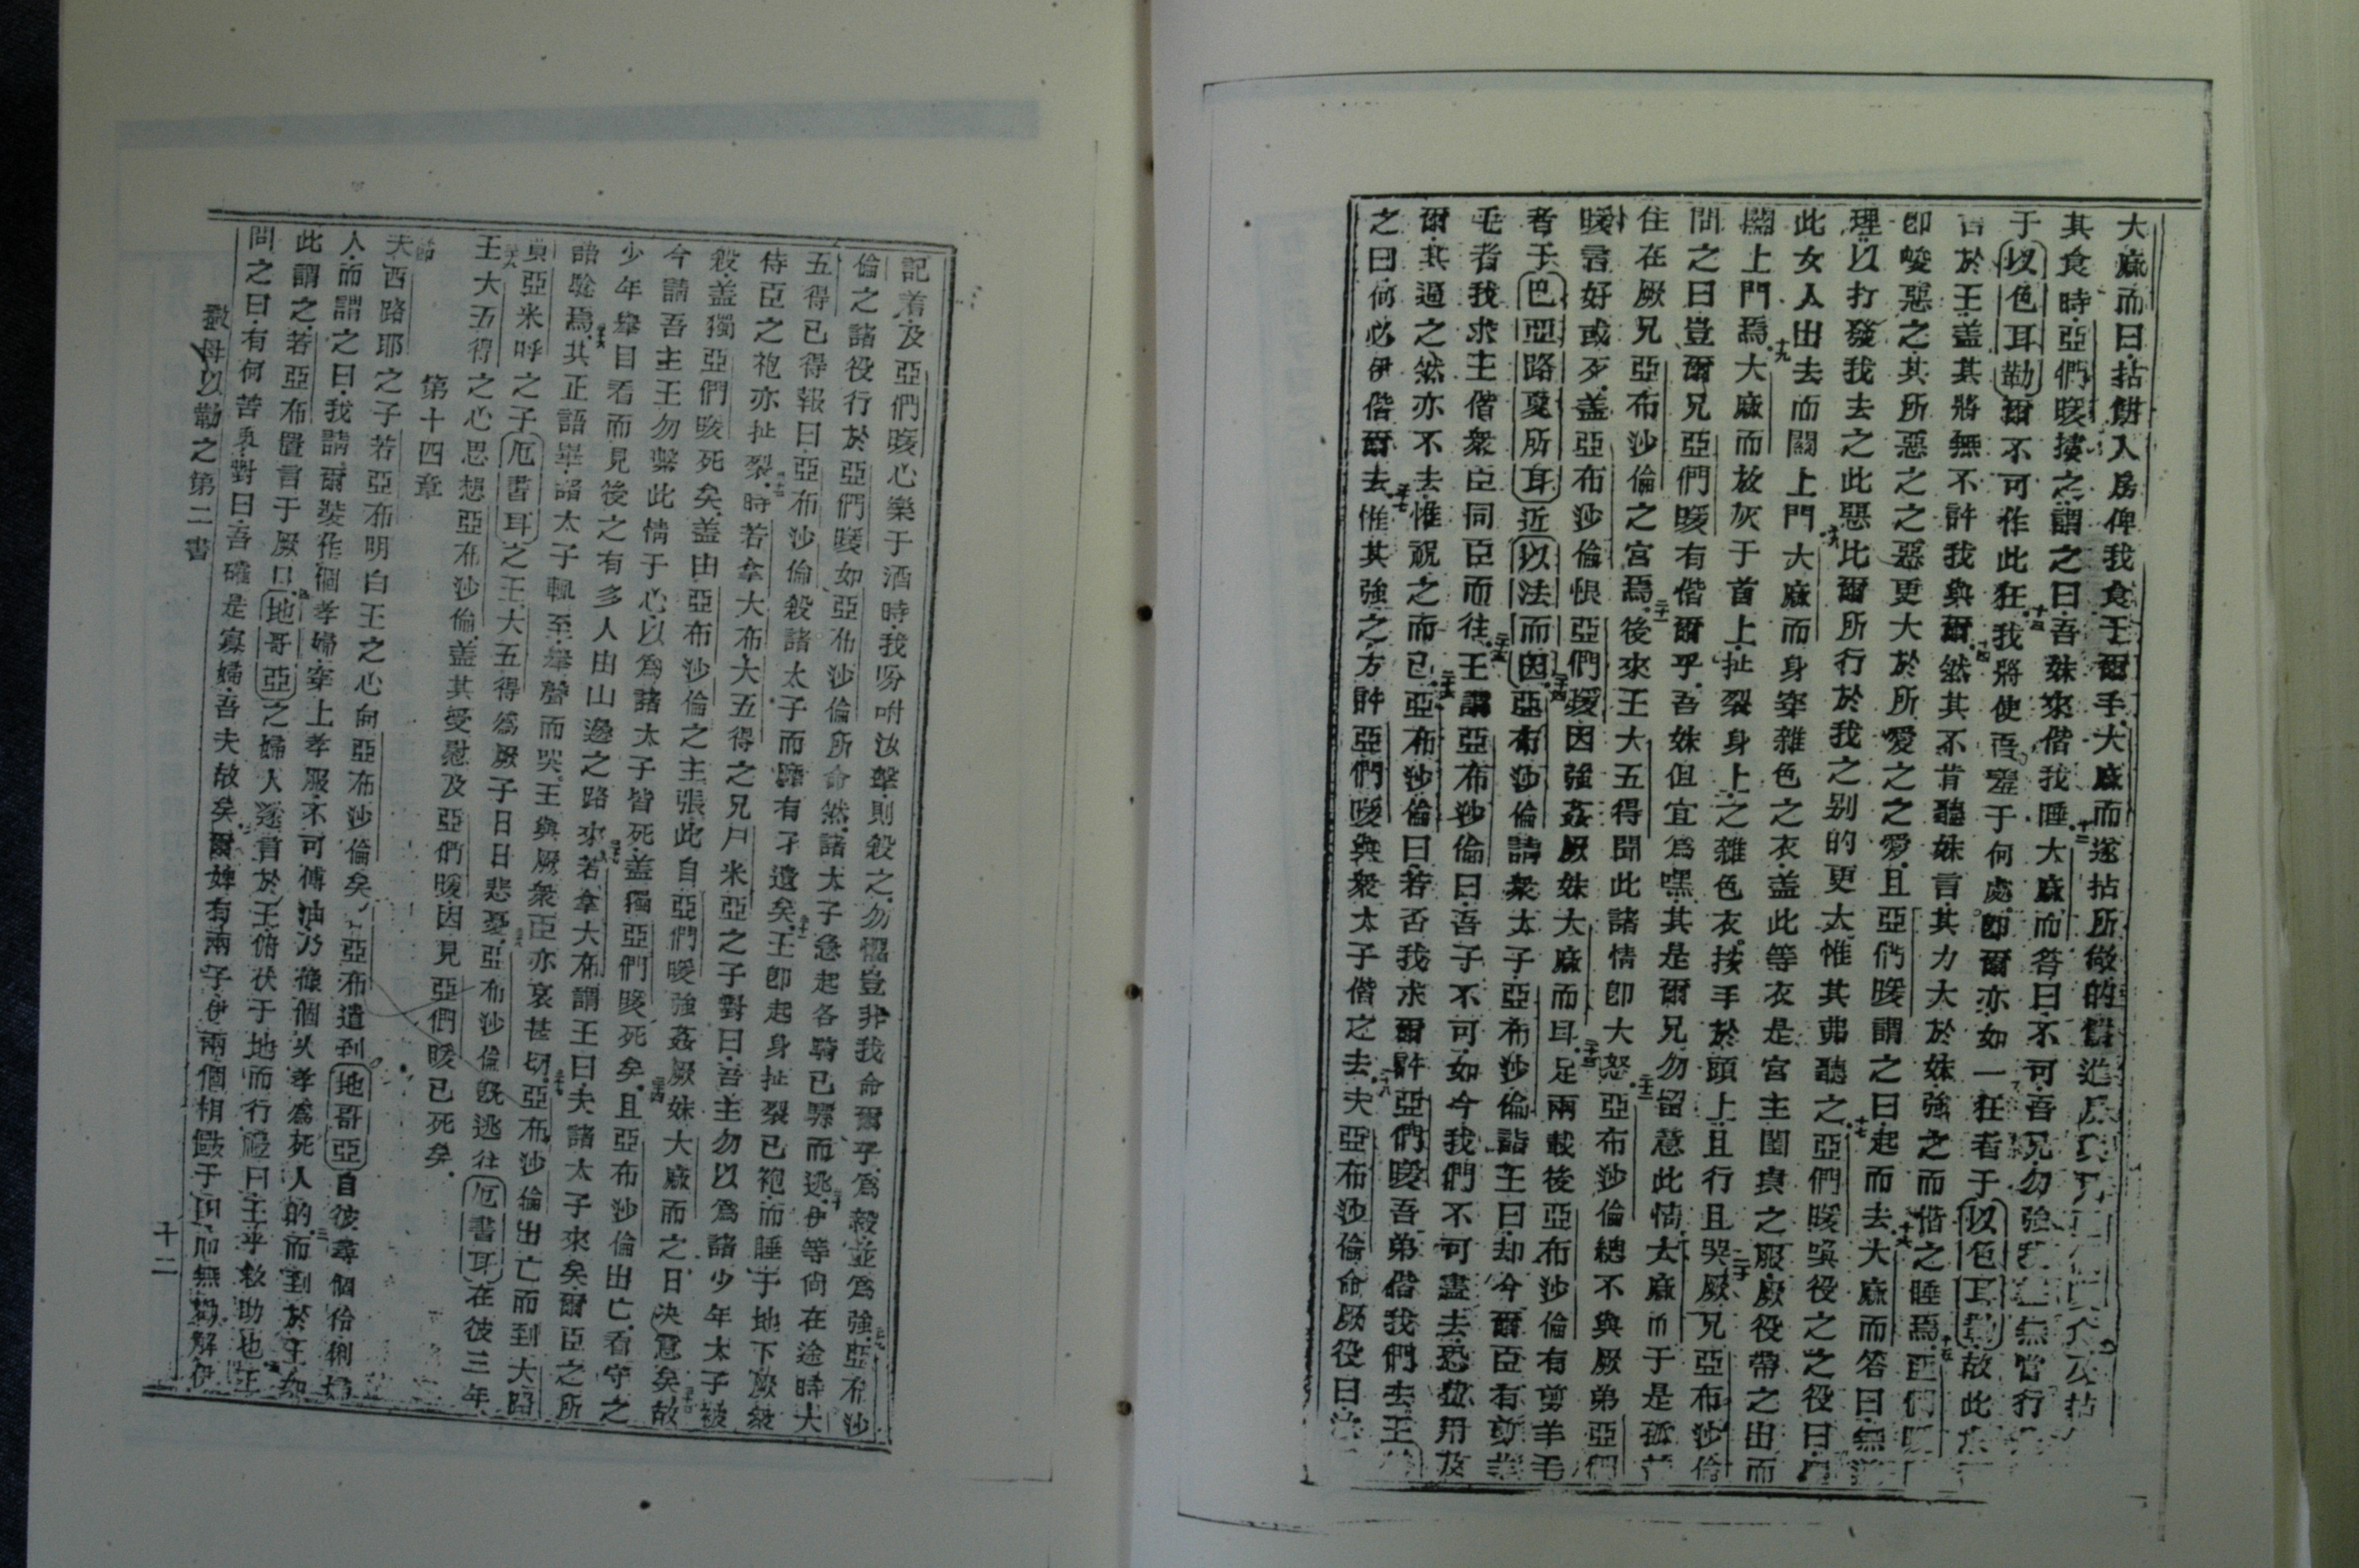 大麻而曰拈餅入房俾我食于爾手大麻而遂拈所做的餅進房
其食時亞們㬉摟之謂之曰吾妹來偕我睡十二大麻而答曰不可吾兄勿強我盖無當行
于以色耳勒爾不可作此狂十三我將使吾羞于何處卽爾亦如一狂者于以色耳勒故此
言於王盖其將無不許我與爾十四然其不肯聽妹言其力大於妹強之而偕之睡焉十五亞們㬉
卽峻惡之其所惡之之惡更大於所愛之之愛且亞們㬉謂之曰起而去十六大麻而答曰無
理以打發我去之此惡比爾所行於我之别的更大惟其弗聽之十七亞們㬉喚役之之役曰
此女人出去而關上門十八大麻而身穿雜色之衣盖此等衣是宮主閨貞之服厥役帶之出而
關上門焉十九大麻而放灰于首上扯裂身上之雜色衣按手於頭上且行且哭二十厥兄亞布沙倫
問之曰豈爾兄亞們㬉有偕爾乎吾妹但宜爲嘿其是爾兄勿留意此情大麻而于是孤
住在厥兄亞布沙倫之宮焉二十一後來王大五得聞此諸情卽大怒二十二亞布沙倫總不與厥弟亞們
㬉言好或歹盖亞布沙倫恨亞們㬉因強姦厥妹大麻而耳二十三足兩載後亞布沙倫有剪羊毛
者于巴亞路夏所耳近以法而因二十四亞布沙倫請衆太子亞布沙倫詣王曰却今爾臣有剪羊
毛者我求主偕衆臣同臣而往二十五王謂亞布沙倫曰吾子不可如今我們不可盡去恐費用及
爾其逼之然亦不去惟祝之而已二十六亞布沙倫曰若否我求爾許亞們㬉吾弟偕我們去王
之曰何必伊偕爾去二十七惟其強之方許亞們㬉與衆太子偕之去二十八夫亞布沙倫命厥役曰
記着及亞們㬉心樂于酒時我吩咐汝擊則殺之勿懼豈非我命爾乎爲毅並爲強二十九亞布沙
倫之諸役行於亞們㬉如亞布沙倫所命然諸太子急起各騎已騾而逃三十伊等尚在途時大
五得已得報曰亞布沙倫殺諸太子而靡有孑遺矣三十一王卽起身扯裂已袍而睡于地下厥衆
侍臣之袍亦扯裂三十二時若拿大布大五得之兄尸米亞之子對曰吾主勿以爲諸少年太子被
殺盖獨亞們㬉死矣盖由亞布沙倫之主張此自亞們㬉強姦厥妹大麻而之日决意矣三十三故
今請吾主王勿繫此情于心以爲諸太子皆死盖獨亞們㬉死矣三十四且亞布沙倫出亡看守之
少年舉目看而見後之有多人由山邊之路來三十五若拿大布謂王曰夫諸太子來矣爾臣之所
語騐焉三十六其正語畢諸太子輒至舉聲而哭王與厥衆臣亦哀甚切三十七亞布沙倫出亡而到大路
買亞米呼之子厄書耳之王大五得爲厥子日日悲憂三十八亞布沙倫旣逃往厄書耳在彼三年
三十九王大五得之心思想亞布沙倫盖其受慰及亞們㬉因見亞們㬉已死矣
第十四章
一節夫西路耶之子若亞布明白王之心向亞布沙倫矣二亞布遣到地哥亞自彼尋個伶俐婦
人而謂之曰我請爾裝作個孝婦穿上孝服不可傅油乃像個久孝爲死人的三而到於王如
此謂之若亞布置言于厥口四地哥亞之婦人遂言於王俯伏于地而行禮曰王乎救助也五王
問之曰有何苦事對曰吾確是寡婦吾夫故矣六爾婢有兩子伊兩個相鬭于田而無勸解伊
撒母以勒之第二書
十二